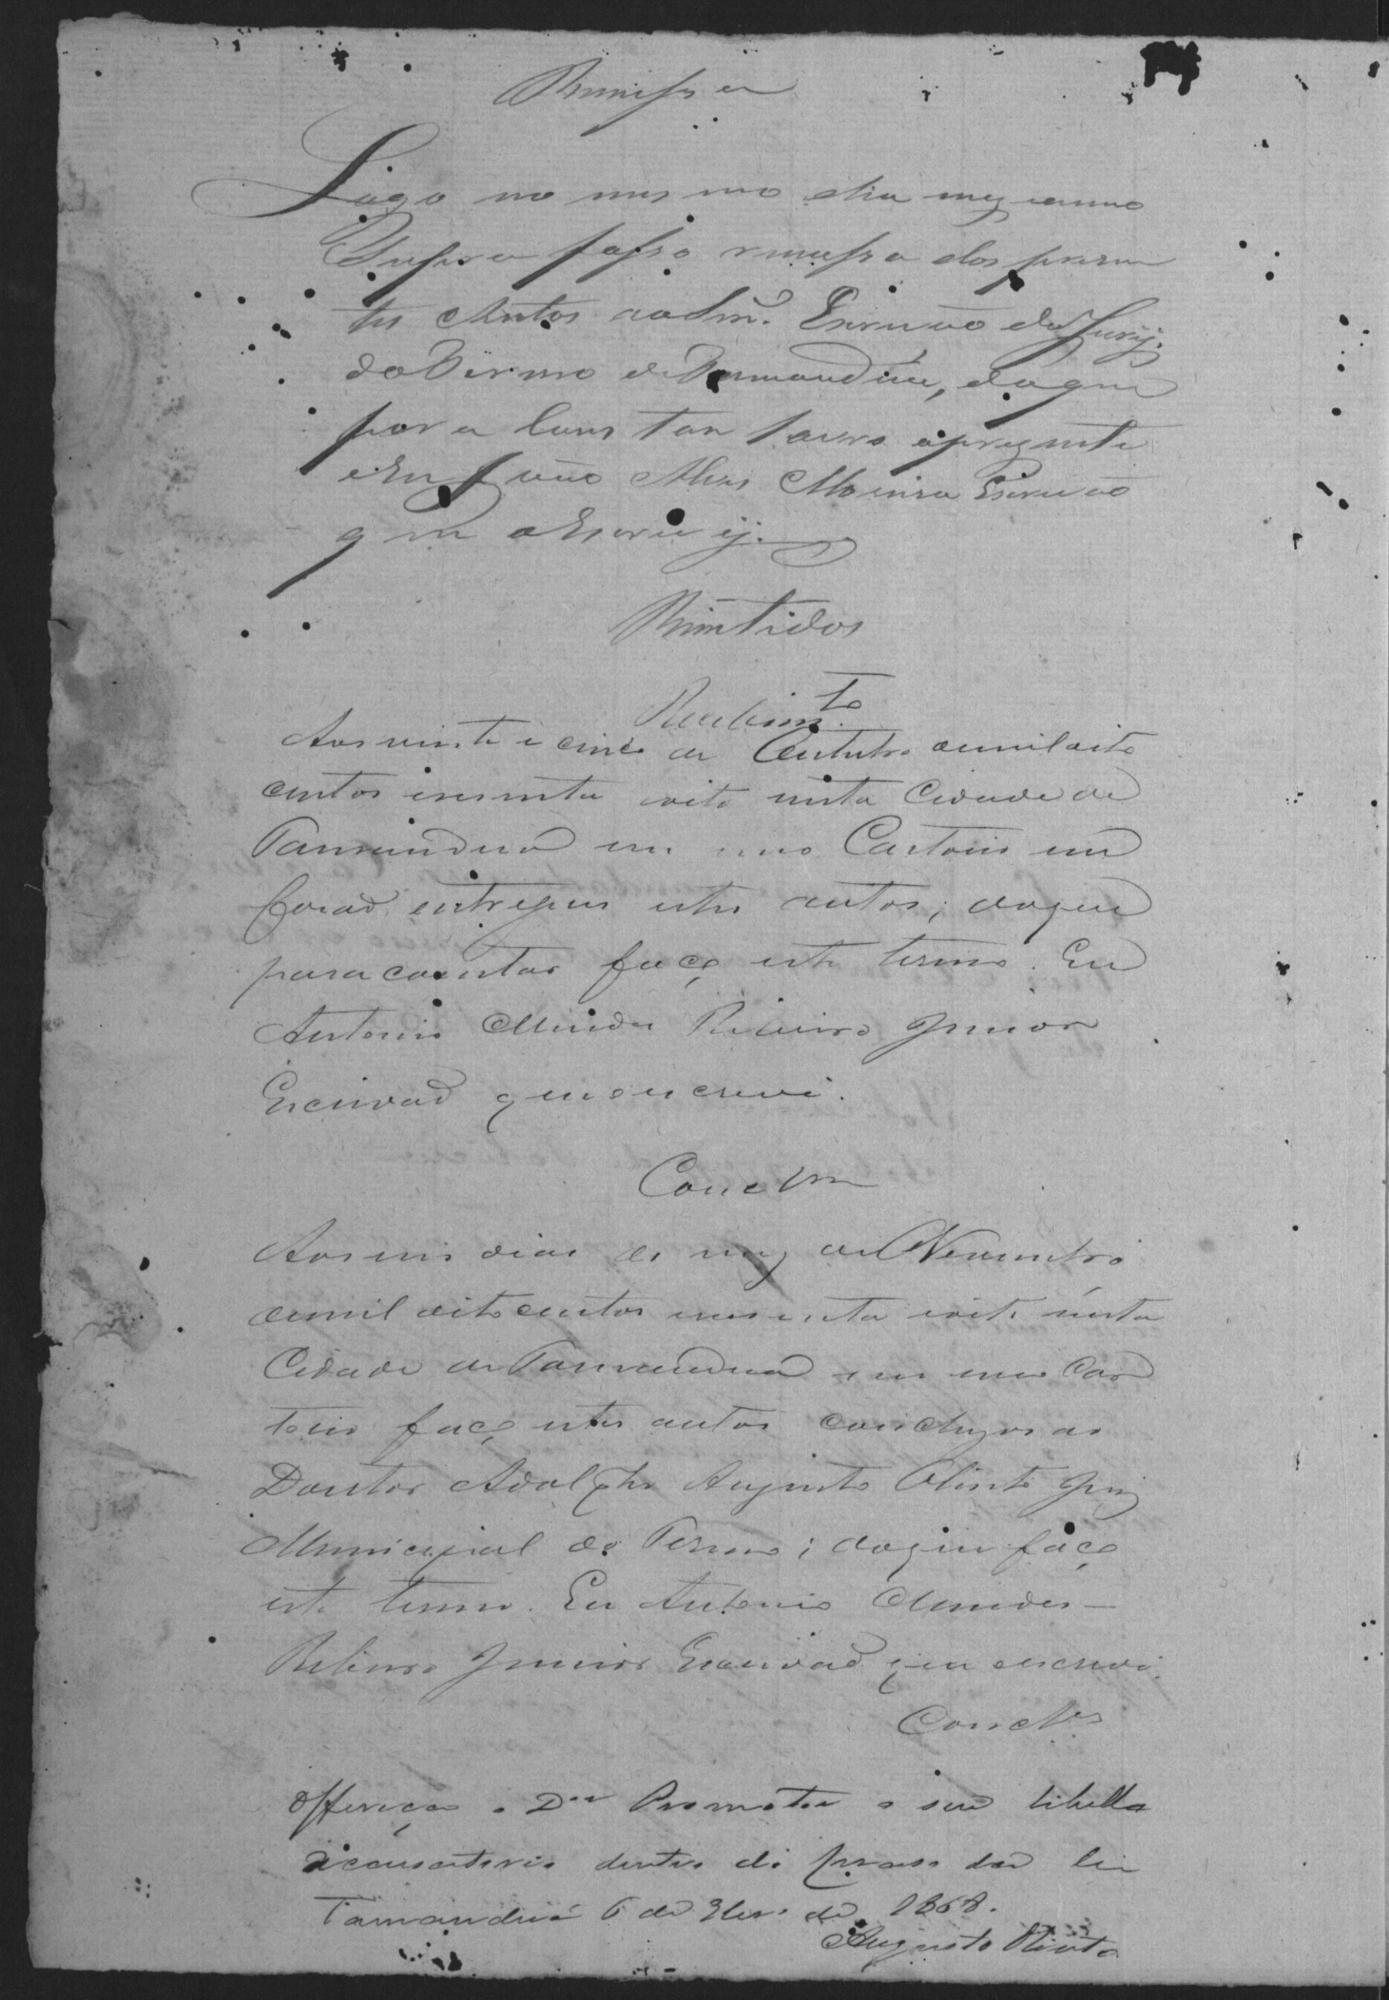 Remessa
Logo no mesmo dia mez e anno
Supra fasso remessa dos prezen
tes Autos ao Snr. Escrivão do Jury
do Termo de Tamanduá, do que
para Constar lavro o prezente
e Eu João Alves Moreira Escrivão
que o Escrevij.
Remetidos
Recebim.to
Aos vinte e cinco de Outubro de mil oito
centos e secenta e oito nesta Cidade de
Tamanduá em meo Cartorio me
forão entregues estes autos; do que
para constar faço este termo. Eu
Antonio Mendes Ribeiro Junior
Escrivão que o escrevi.
Concl.m
Aos seis dias do mez de Novembro
de mil oito centos e secenta e oito nesta
Cidade de Tamanduá em meo Car
torio faço estes autos conclusos ao
Doutor Adolpho Augusto Olinto Juiz
Municipal do Termo; do que faço
este termo. Eu Antonio Mendes
Ribeiro Junior Escrivão que o escrevi.
Concl.os
Offereça o D.or Promotor o seu libello
accusatorio dentro do praso da lei
Tamanduá 6 de 9br.o de 1868.
Augusto Olinto